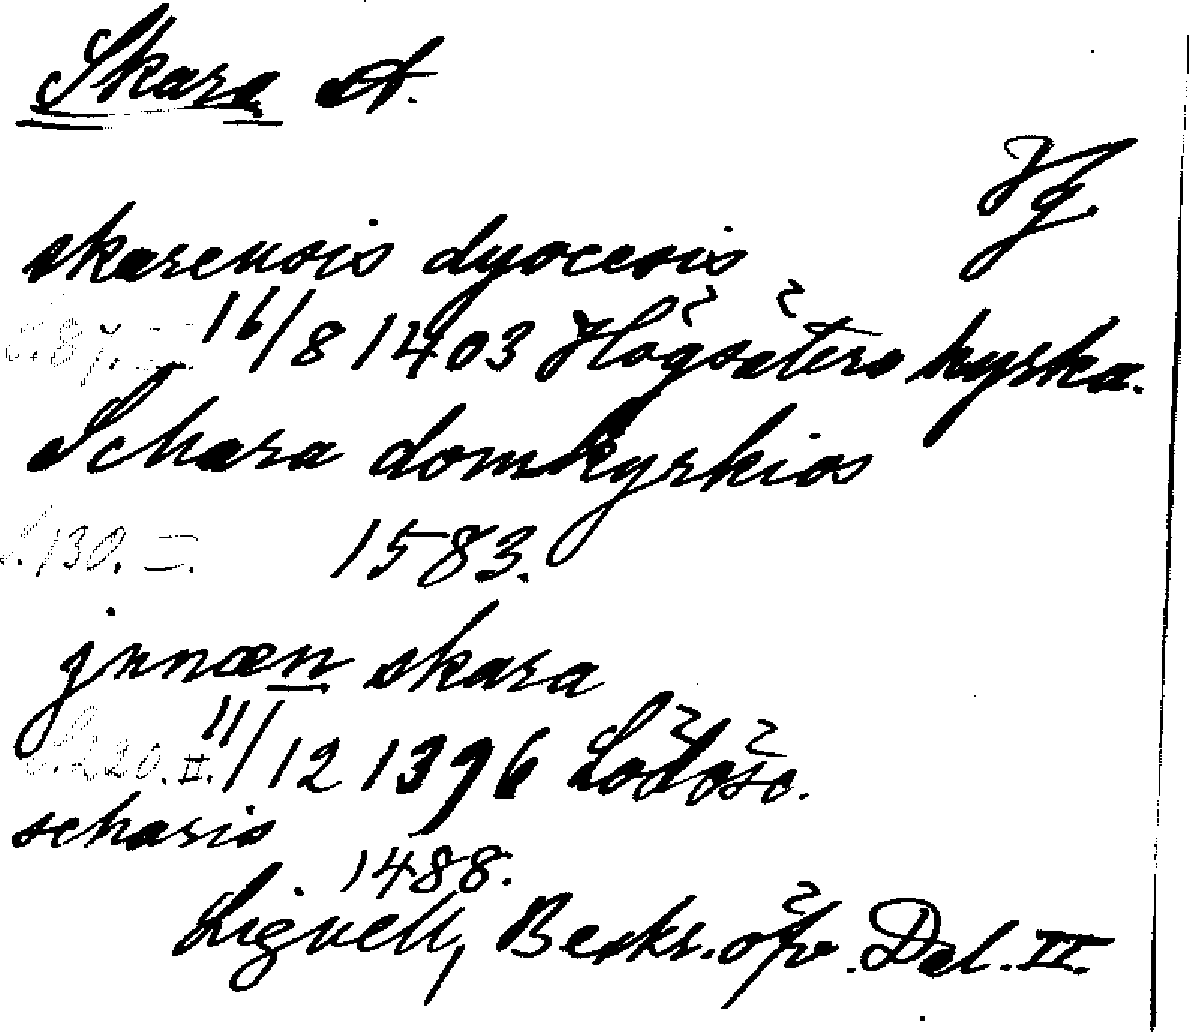 Skara st.
Vg
skarensis dyocesis
16/8 1403 Högsäters kyrka.
Schara domkyrkios
S.130. =. 1583.
jnnæn skara
S.220.II. 11/12 1396 Lödöse.
scharis
1488.
Lignell, Beskr. öfv. Dal. II.